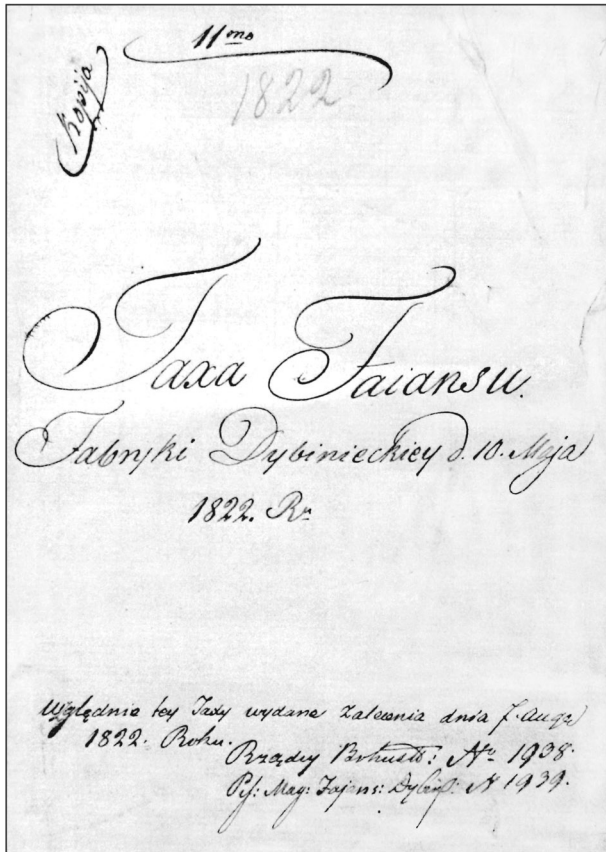 11mo
Kopija
1822
Taxa Faiansu
Fabryki Dybinieckiey d. 10. Maja
1822. Ru
względnie tey Taxy wydane zalecenia dnia 7. Augo
1822. Roku.
Rządcy No 1938.
Pis: Mag: Fajans: N 1939.